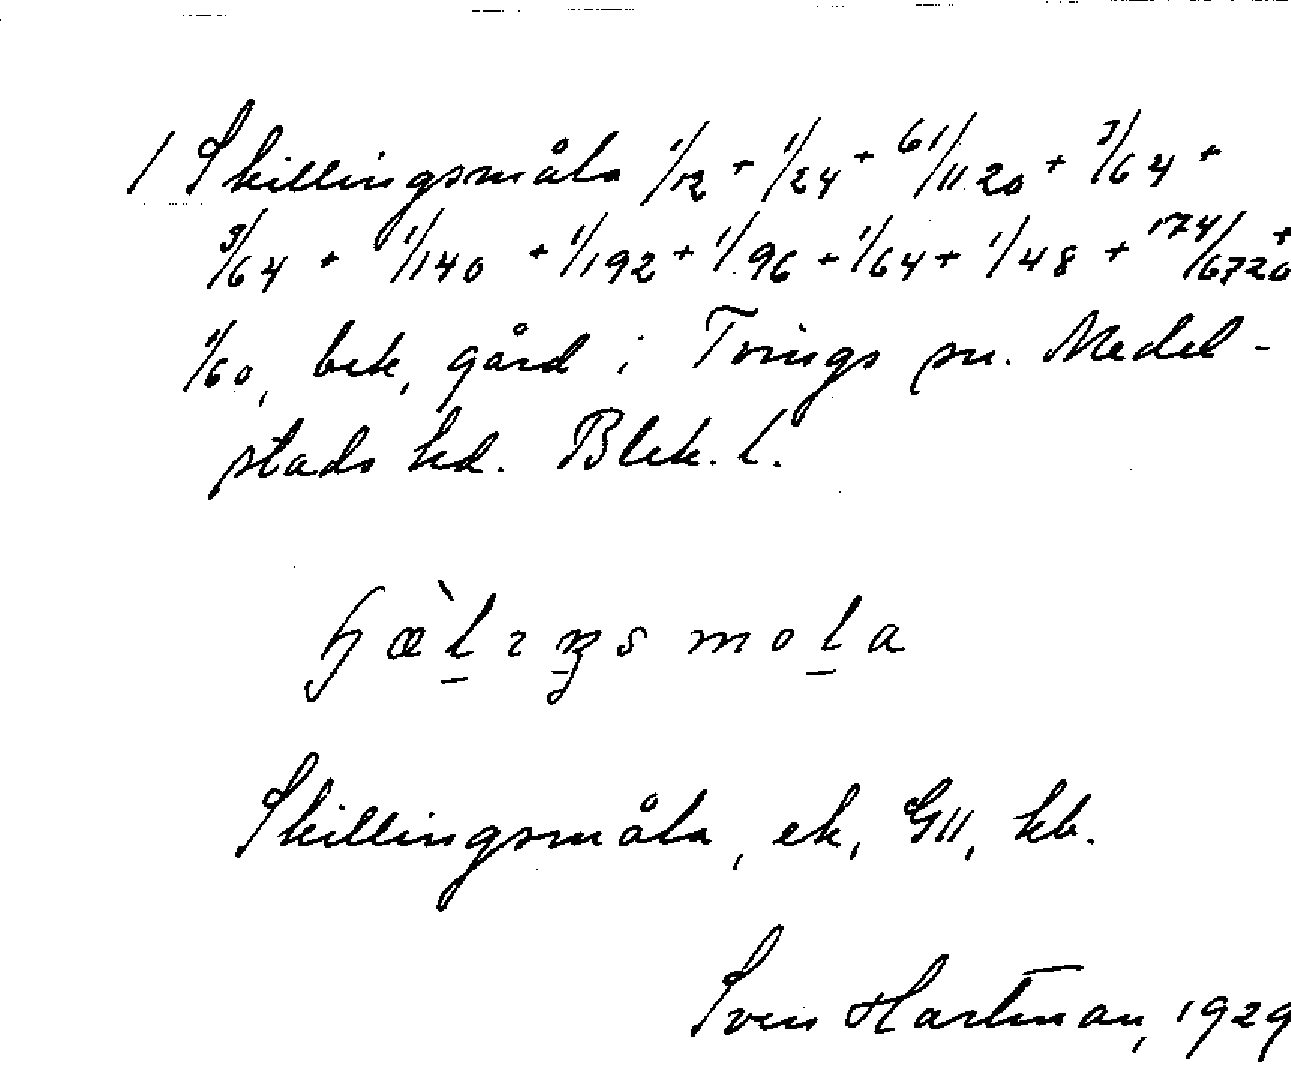 1 Skillingsmåla 1/12 + 1/24 + 61/1120 + 3/64 +
3/64 + 1/140 + 1/192 + 1/96 + 1/64 + 1/48 + 174/6720 +
1/60, bek, gård i Tvings sn. Medel-
stads hd. Blek. l.
ɧæ̀lıŋs mola
Skillingsmåla, ek, GII, kb.
Sven Hartman, 1929